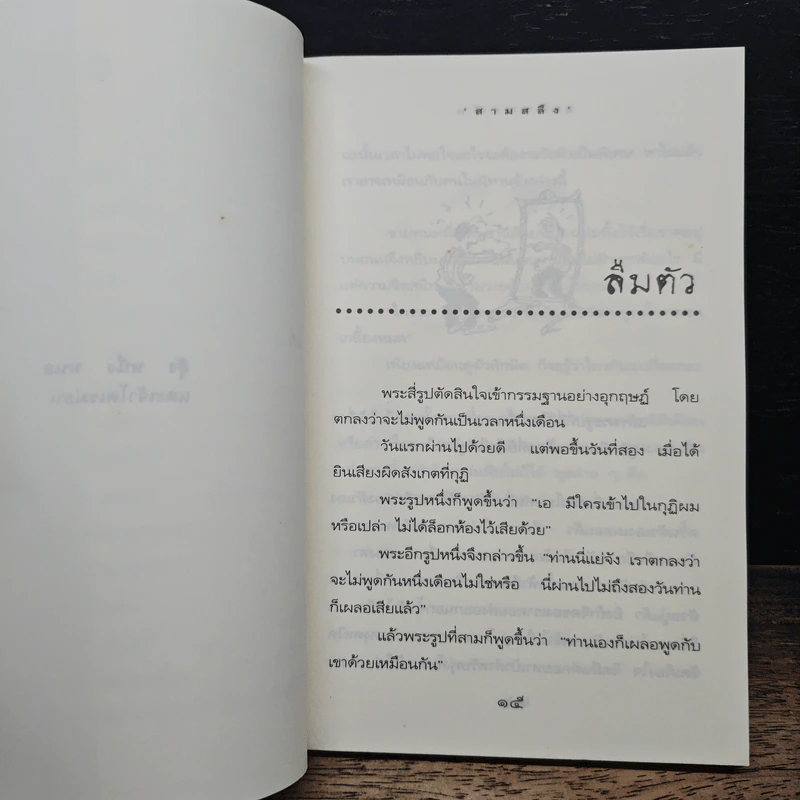 'สามสลึง'
ลืมตัว
พระสี่รูปตัดสินใจเข้ากรรมฐานอย่างอุกฤษฏ์ โดย
ตกลงว่าจะไม่พูดกันเป็นเวลาหนึ่งเดือน
วันแรกผ่านไปด้วยดี แต่พอขึ้นวันที่สอง เมื่อได้
ยินเสียงผิดสังเกตที่กุฏิ
พระรูปหนึ่งก็พูดขึ้นว่า "เอ มีใครเข้าไปในกุฏิผม
หรือเปล่า ไม่ได้ล็อกห้องไว้เสียด้วย"
พระอีกรูปหนึ่งจึงกล่าวขึ้น "ท่านนี่แย่จัง เราตกลงว่า
จะไม่พูดกันหนึ่งเดือนไม่ใช่หรือ นี่ผ่านไปไม่ถึงสองวันท่าน
ก็เผลอเสียแล้ว"
แล้วพระรูปที่สามก็พูดขึ้นว่า "ท่านเองก็เผลอพูดกับ
เขาด้วยเหมือนกัน"
๑๕